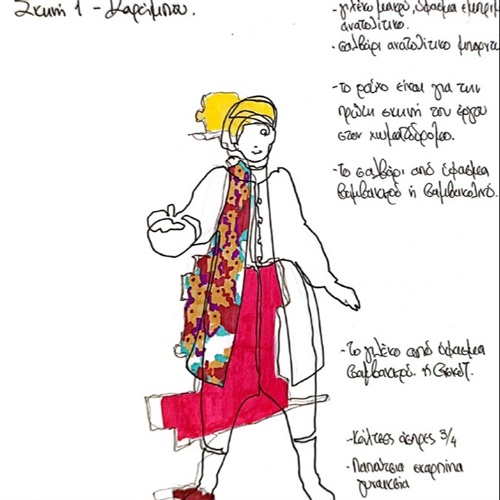 Σκηνή 1 - Καράμπου.
- γιλέκο μακρύ, ύφασμα εμπριμ
ανατολίτικο.
- σαλβάρι ανατολίτικο μπορντώ
- το ρούχο είναι για την
πρώτη σκηνή του έργου
στον χωματόδρομο.
- Το σαλβάρι από ύφασμα
βαμβακερό ή βαμβακολινό.
- Το γιλέκο από ύφασμα
βαμβακερό. ή
- Κάλτσες άσπρες 3/4
- Παπούτσια σκαρπίνια
γυναικεία